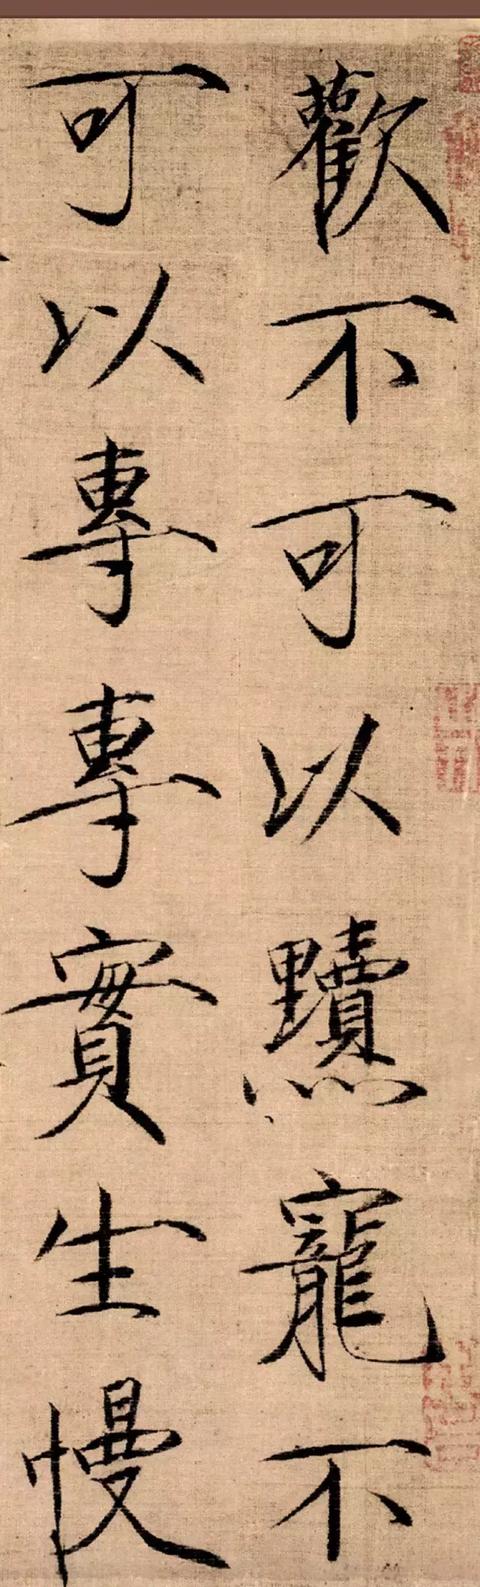 歡不可以黷寵不
可以專專實生慢